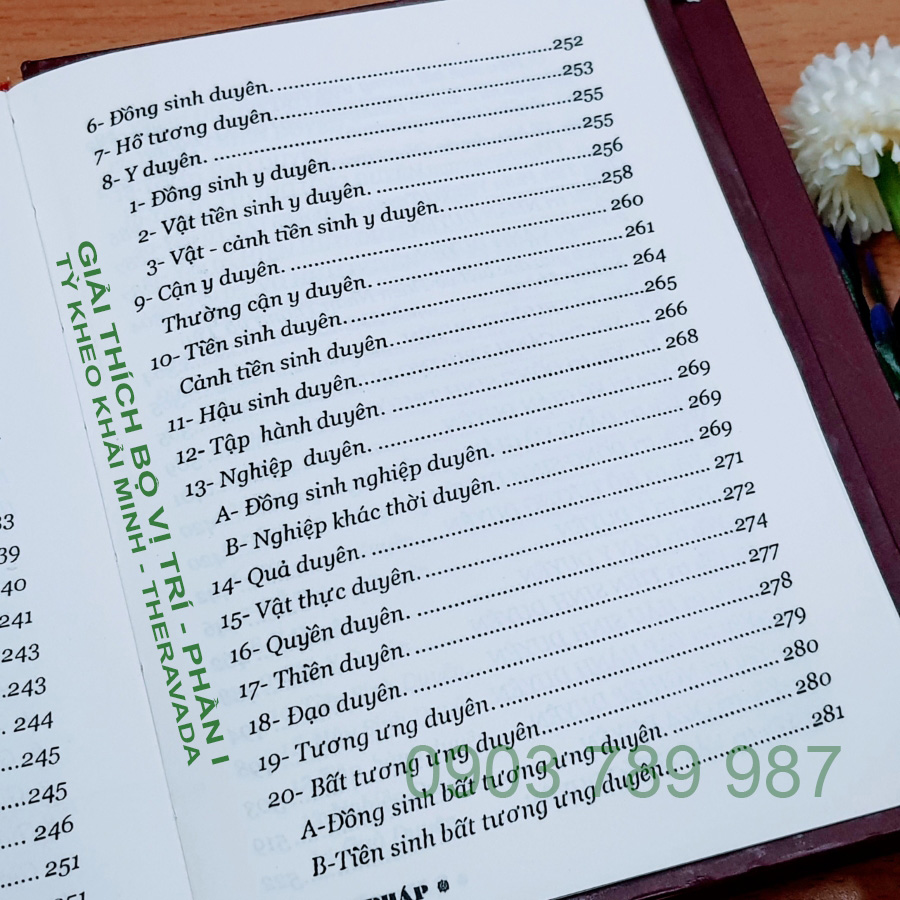 33
39
40
241
243
243
244
245
245
246
251
6- Đồng sinh duyên. 252
7- Hỗ tương duyên. 253
8- Y duyên. 255
1- Đồng sinh y duyên. 255
2- Vật tiền sinh y duyên. 256
3- Vật - cảnh tiền sinh y duyên. 258
9- Cận y duyên. 260
Thường cận y duyên. 261
10- Tiền sinh duyên. 264
Cảnh tiền sinh duyên. 265
11- Hậu sinh duyên. 266
12- Tập hành duyên. 268
13- Nghiệp duyên. 269
A- Đồng sinh nghiệp duyên. 269
B- Nghiệp khác thời duyên. 269
14- Quả duyên. 271
15- Vật thực duyên. 272
16- Quyền duyên. 274
17- Thiền duyên. 277
18- Đạo duyên. 278
19- Tương ưng duyên. 279
20- Bất tương ưng duyên. 280
A-Đồng sinh bất tương ưng duyên. 280
B-Tiền sinh bất tương ưng duyên. 281
PHÁP
GIẢI THÍCH BỘ VỊ TRÍ - PHẦN I
TỲ KHEO KHẢI MINH - THERAVADA
0903 789 987